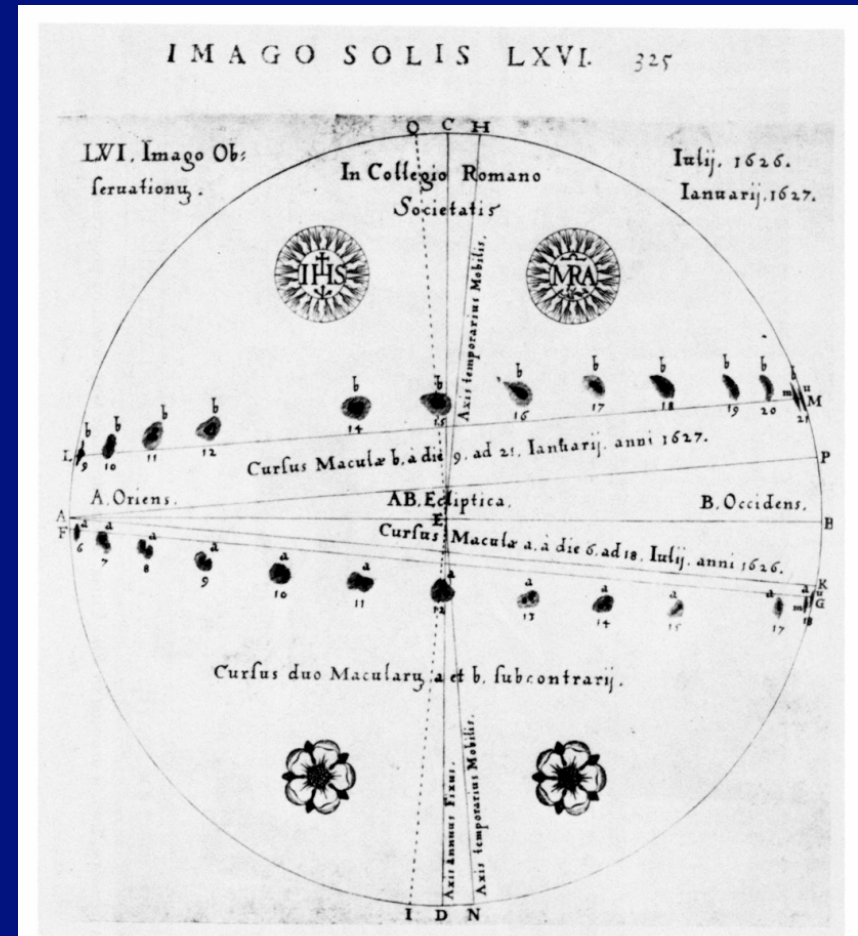 IMAGO SOLIS LXVI. 325
O C H
LVI. Imago Ob:
seruationuʒ.
In Collegio Romano
Societatis
Iulij. 1626.
Ianuarij. 1627.
IHS
MRA
Axis temporarius Mobilis.
b b b b b b b b b b b b
9 10 11 12 14 15 16 17 18 19 20 21
L
m u M
Cursus Maculæ b, à die 9. ad 21. Ianuarij. anni 1627.
P
A. Oriens.
AB. Ecliptica.
B. Occidens.
A E B
F
Cursus Maculæ a, à die 6. ad 18. Iulij, anni 1626.
K
a a a a a a a a a a a a
m u G
6 7 8 9 10 11 12 13 14 15 17 18
Cursus duo Macularuʒ a et b, subcontrarij.
Axis Annuus Fixus.
Axis temporarius Mobilis.
I D N